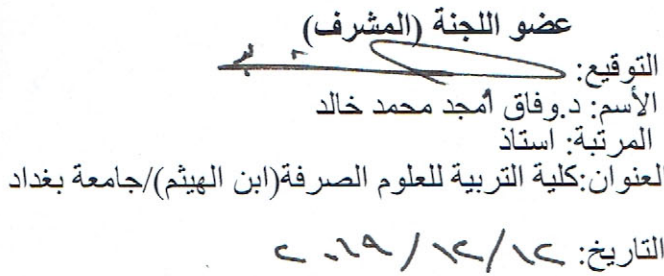 عضو اللجنة (المشرف)
التوقيع:
الأسم: د.وفاق أمجد محمد خالد
المرتبة: استاذ
العنوان:كلية التربية للعلوم الصرفة(ابن الهيثم)/جامعة بغداد
التاريخ: ١٢/١٢/٢٠١٩